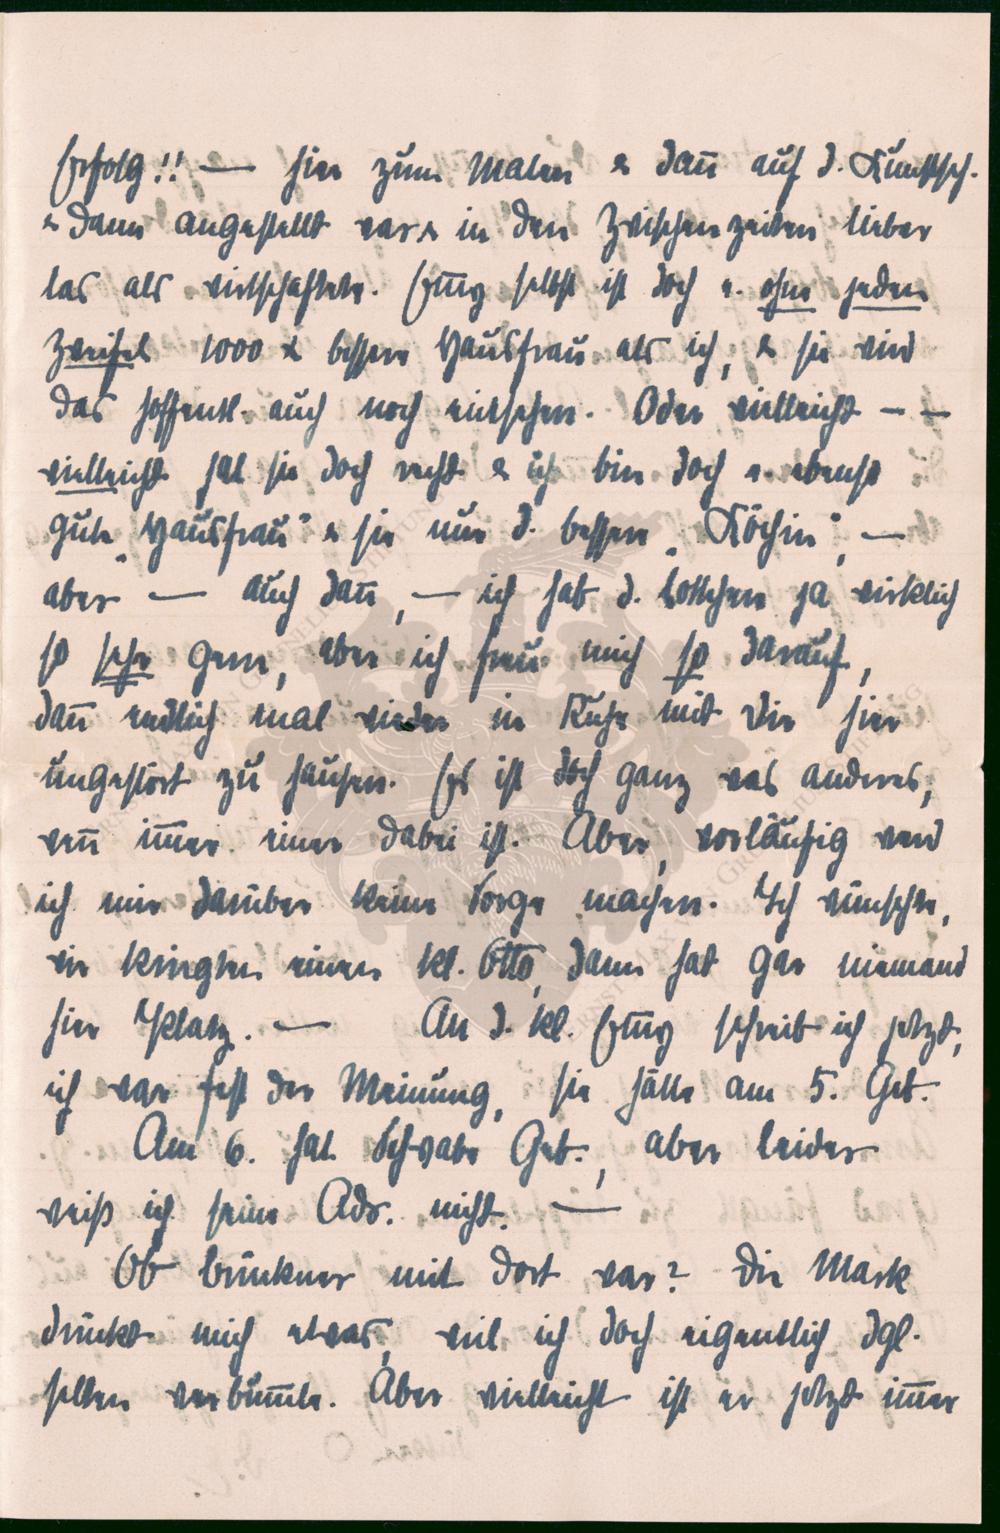 Erfolg!! — hier zum Malen & dañ auf d. Kunstsch.
& dann angestellt war & in den Zwischenzeiten lieber
las als wirtschaftete. Em̃y selbst ist doch u. ohne jeden
Zweifel 1000 x bessere Hausfrau als ich, & sie wird
das hoffentl. auch noch einsehen. Oder vielleicht — —
vielleicht hat sie doch recht & ich bin doch e. ebenso
gute „Hausfrau" & sie nur d. bessere „Köchin", —
aber — auch dañ, — ich hab d. Lottchen ja wirklich
so sehr gern, aber ich freu mich so darauf,
dañ endlich mal wieder in Ruhe mit Dir hier
ungestört zu hausen. Es ist doch ganz was anderes,
weñ im̃er einer dabei ist. Aber, vorläufig werd
ich mir darüber keine Sorge machen. Ich wünschte,
wir kriegten einen kl. Otto, dann hat gar niemand
hier Platz. — An d. kl. Em̃y schreib ich jetzt,
ich war fest der Meinung, sie hätte am 5. Geb.
Am 6. hat Schwabe Geb., aber leider
weiß ich seine Adr. nicht. —
Ob Brückner mit dort war? Die Mark
drückt mich etwas, weil ich doch eigentlich dgl.
selten verbum̃le. Aber vielleicht ist er jetzt im̃er